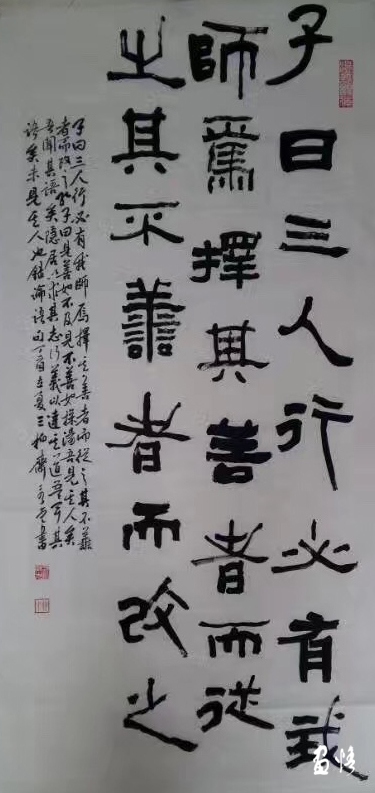 子曰三人行必有我
師焉擇其善者而從
之其不善者而改之
子曰三人行必有我師焉擇其善者而從之其不善
者而改之孔子曰見善如不及見不善如探湯吾見其人矣
吾聞其語矣隱居以求其志行義以達其道吾聞其
語矣未見其人也錄論語句丁酉立夏三柳齋書